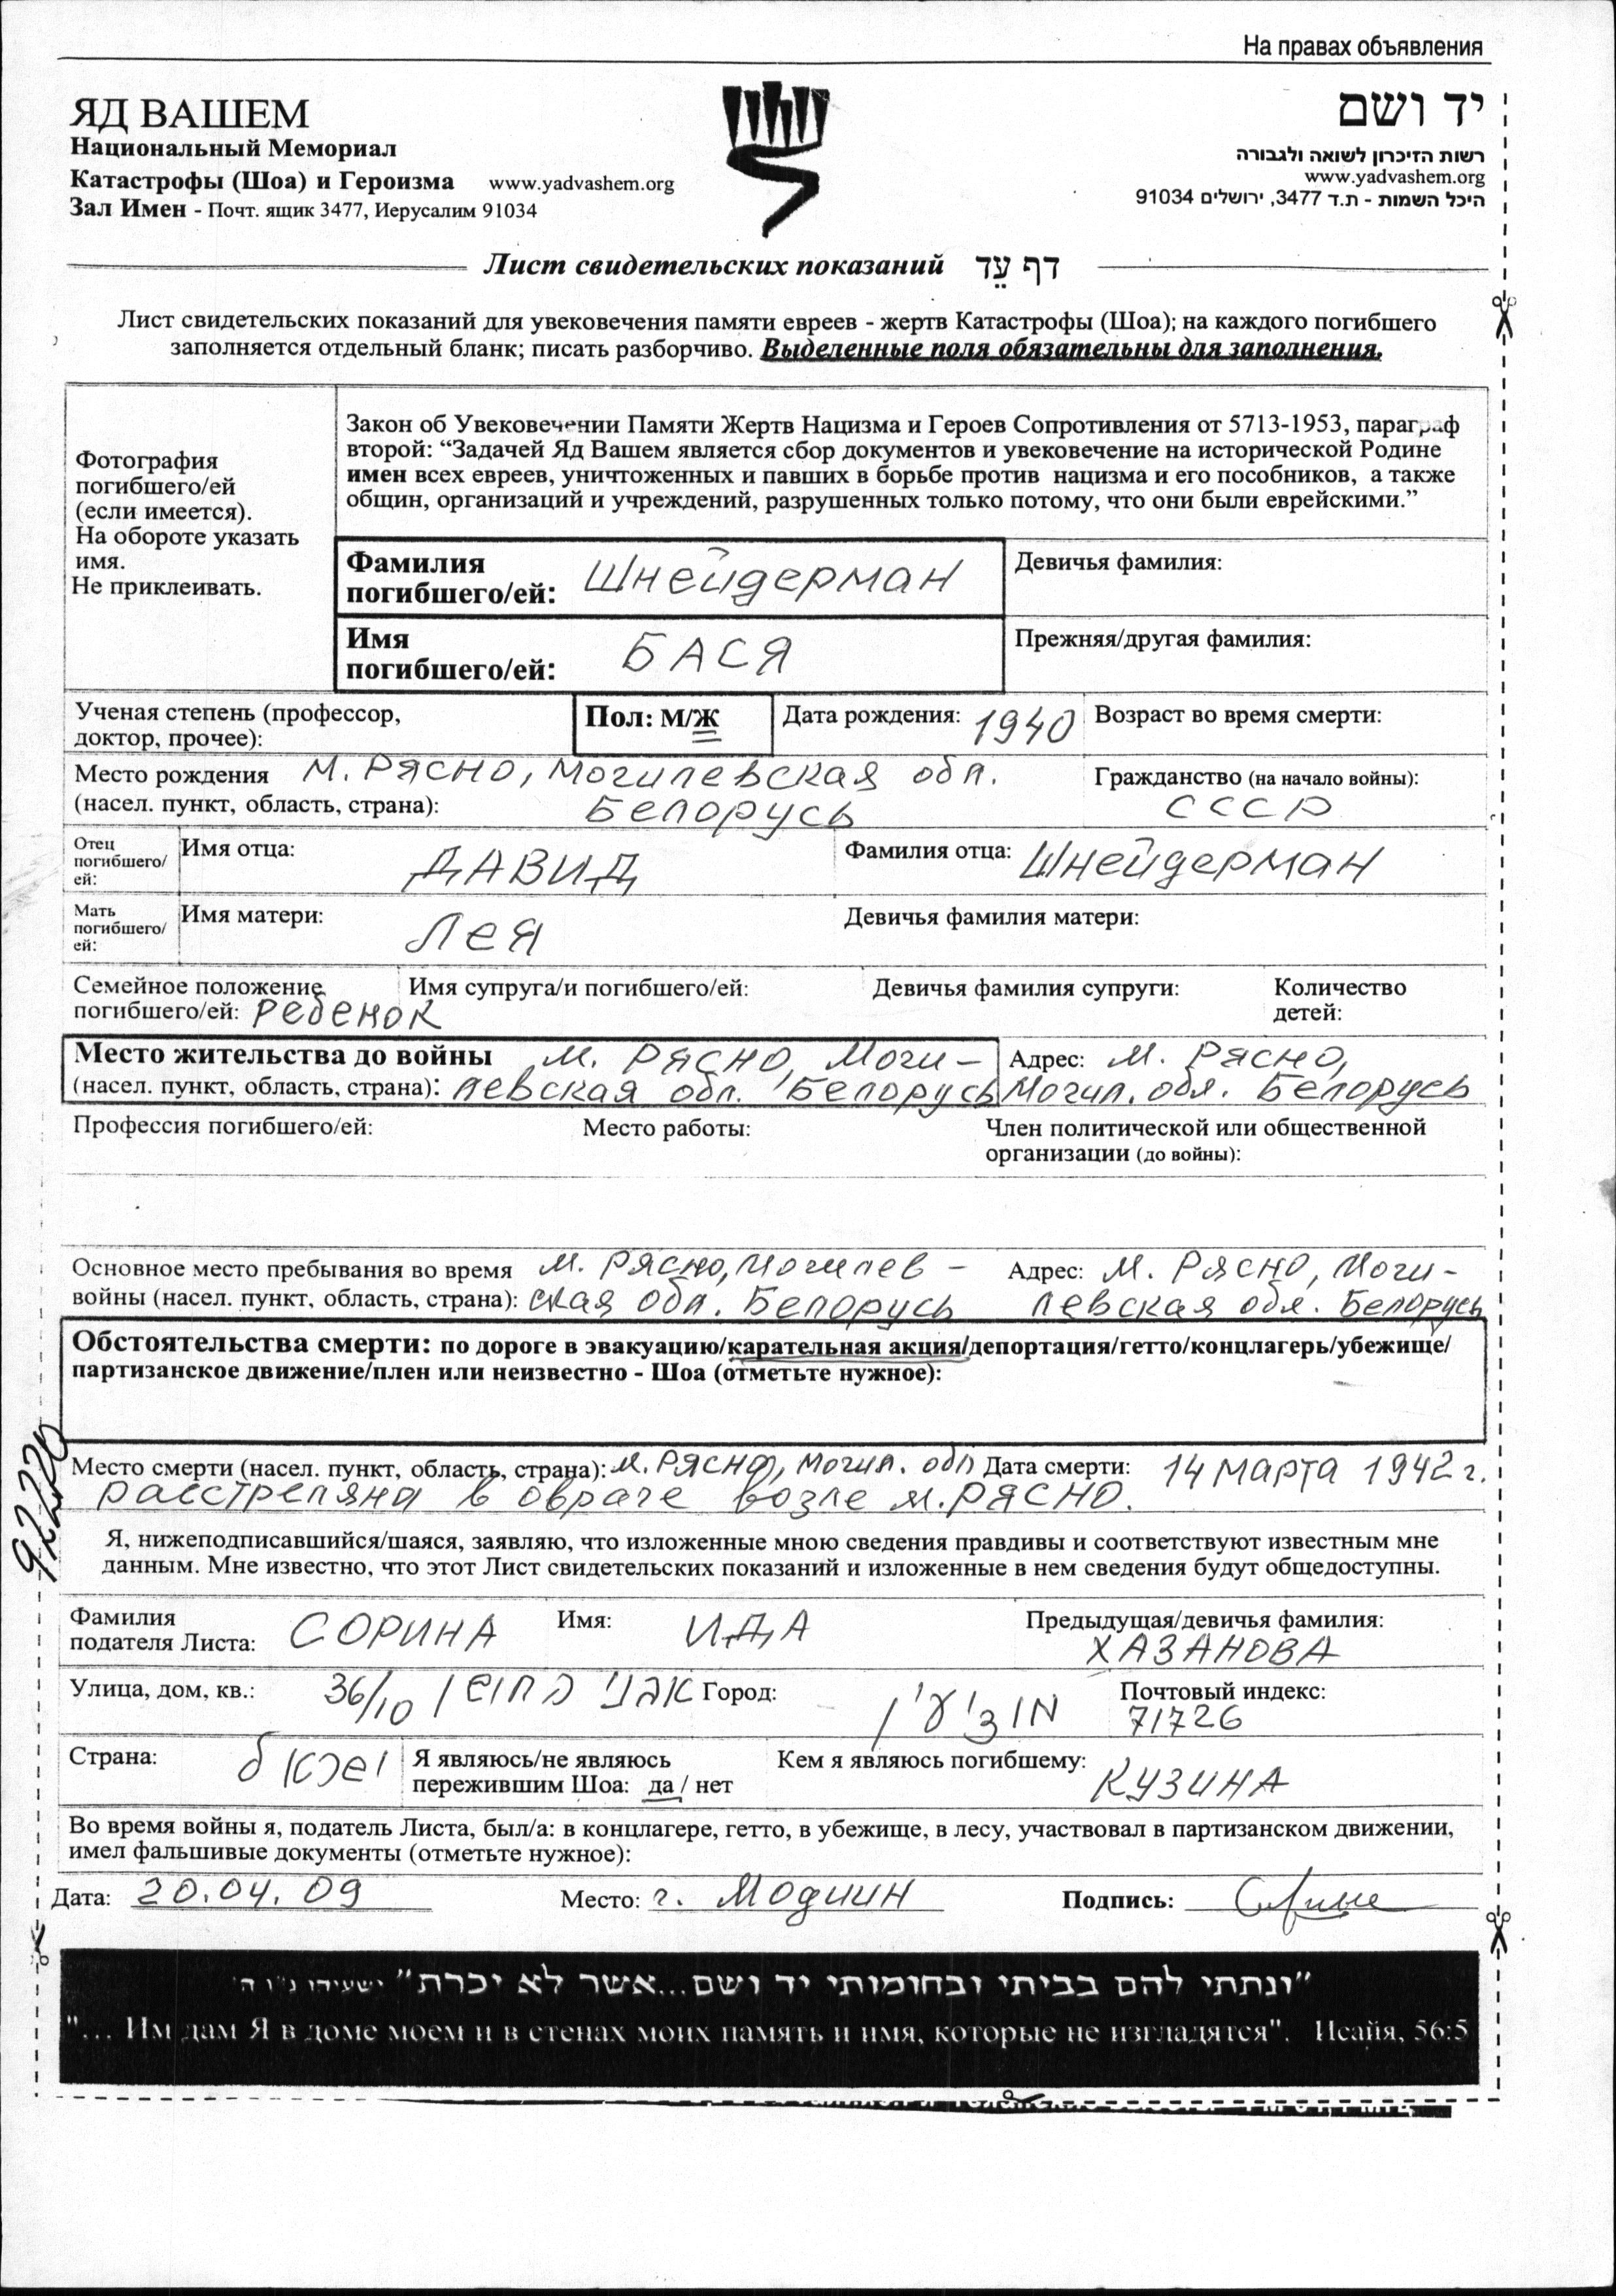 На правах объявления
ЯД ВАШЕМ
Национальный Мемориал
Катастрофы (Шоа) и Героизма www.yadvashem.org
Зал Имен - Почт. ящик 3477, Иерусалим 91034
יד ושם
רשות הזיכרון לשואה ולגבורה
www.yadvashem.org
היכל השמות - ת.ד 3477, ירושלים 91034
Лист свидетельских показаний דף עֵד
Лист свидетельских показаний для увековечения памяти евреев - жертв Катастрофы (Шоа); на каждого погибшего
заполняется отдельный бланк; писать разборчиво. Выделенные поля обязательны для заполнения.
Фотография
погибшего/ей
(если имеется).
На обороте указать
имя.
Не приклеивать.
Закон об Увековечении Памяти Жертв Нацизма и Героев Сопротивления от 5713-1953, параграф
второй: “Задачей Яд Вашем является сбор документов и увековечение на исторической Родине
имен всех евреев, уничтоженных и павших в борьбе против нацизма и его пособников, а также
общин, организаций и учреждений, разрушенных только потому, что они были еврейскими.”
Фамилия
погибшего/ей: Шнейдерман
Девичья фамилия:
Имя
погибшего/ей: БАСЯ
Прежняя/другая фамилия:
Ученая степень (профессор,
доктор, прочее):
Пол: М/Ж
Дата рождения: 1940
Возраст во время смерти:
Место рождения м. Рясно, Могилевская обл.
(насел. пункт, область, страна): Белорусь
Гражданство (на начало войны):
СССР
Отец
погибшего/
ей:
Имя отца: ДАВИД
Фамилия отца: Шнейдерман
Мать
погибшего/
ей:
Имя матери: Лея
Девичья фамилия матери:
Семейное положение
погибшего/ей: ребенок
Имя супруга/и погибшего/ей:
Девичья фамилия супруги:
Количество
детей:
Место жительства до войны м. Рясно, Моги-
(насел. пункт, область, страна): левская обл. Белорусь
Адрес: м. Рясно,
Могил. обл. Белорусь
Профессия погибшего/ей:
Место работы:
Член политической или общественной
организации (до войны):
Основное место пребывания во время м. Рясно, Могилев-
войны (насел. пункт, область, страна): ская обл. Белорусь
Адрес: м. Рясно, Моги-
левская обл. Белорусь
Обстоятельства смерти: по дороге в эвакуацию/карательная акция/депортация/гетто/концлагерь/убежище/
партизанское движение/плен или неизвестно - Шоа (отметьте нужное):
92220
Место смерти (насел. пункт, область, страна): м. Рясно, Могил. обл Дата смерти: 14 марта 1942 г.
расстреляна в овраге возле м. Рясно.
Я, нижеподписавшийся/шаяся, заявляю, что изложенные мною сведения правдивы и соответствуют известным мне
данным. Мне известно, что этот Лист свидетельских показаний и изложенные в нем сведения будут общедоступны.
Фамилия
подателя Листа: СОРИНА
Имя: ИДА
Предыдущая/девичья фамилия:
ХАЗАНОВА
Улица, дом, кв.: 36/10 אבני החושן
Город: מודיעין
Почтовый индекс:
71726
Страна: ישראל
Я являюсь/не являюсь
пережившим Шоа: да / нет
Кем я являюсь погибшему:
КУЗИНА
Во время войны я, податель Листа, был/а: в концлагере, гетто, в убежище, в лесу, участвовал в партизанском движении,
имел фальшивые документы (отметьте нужное):
Дата: 20.04.09 Место: г. Модиин Подпись:
"ונתתי להם בביתי ובחומותי יד ושם...אשר לא יכרת" ישעיהו נ"ו ה'
"... Им дам Я в доме моем и в стенах моих память и имя, которые не изгладятся". Исайя, 56:5